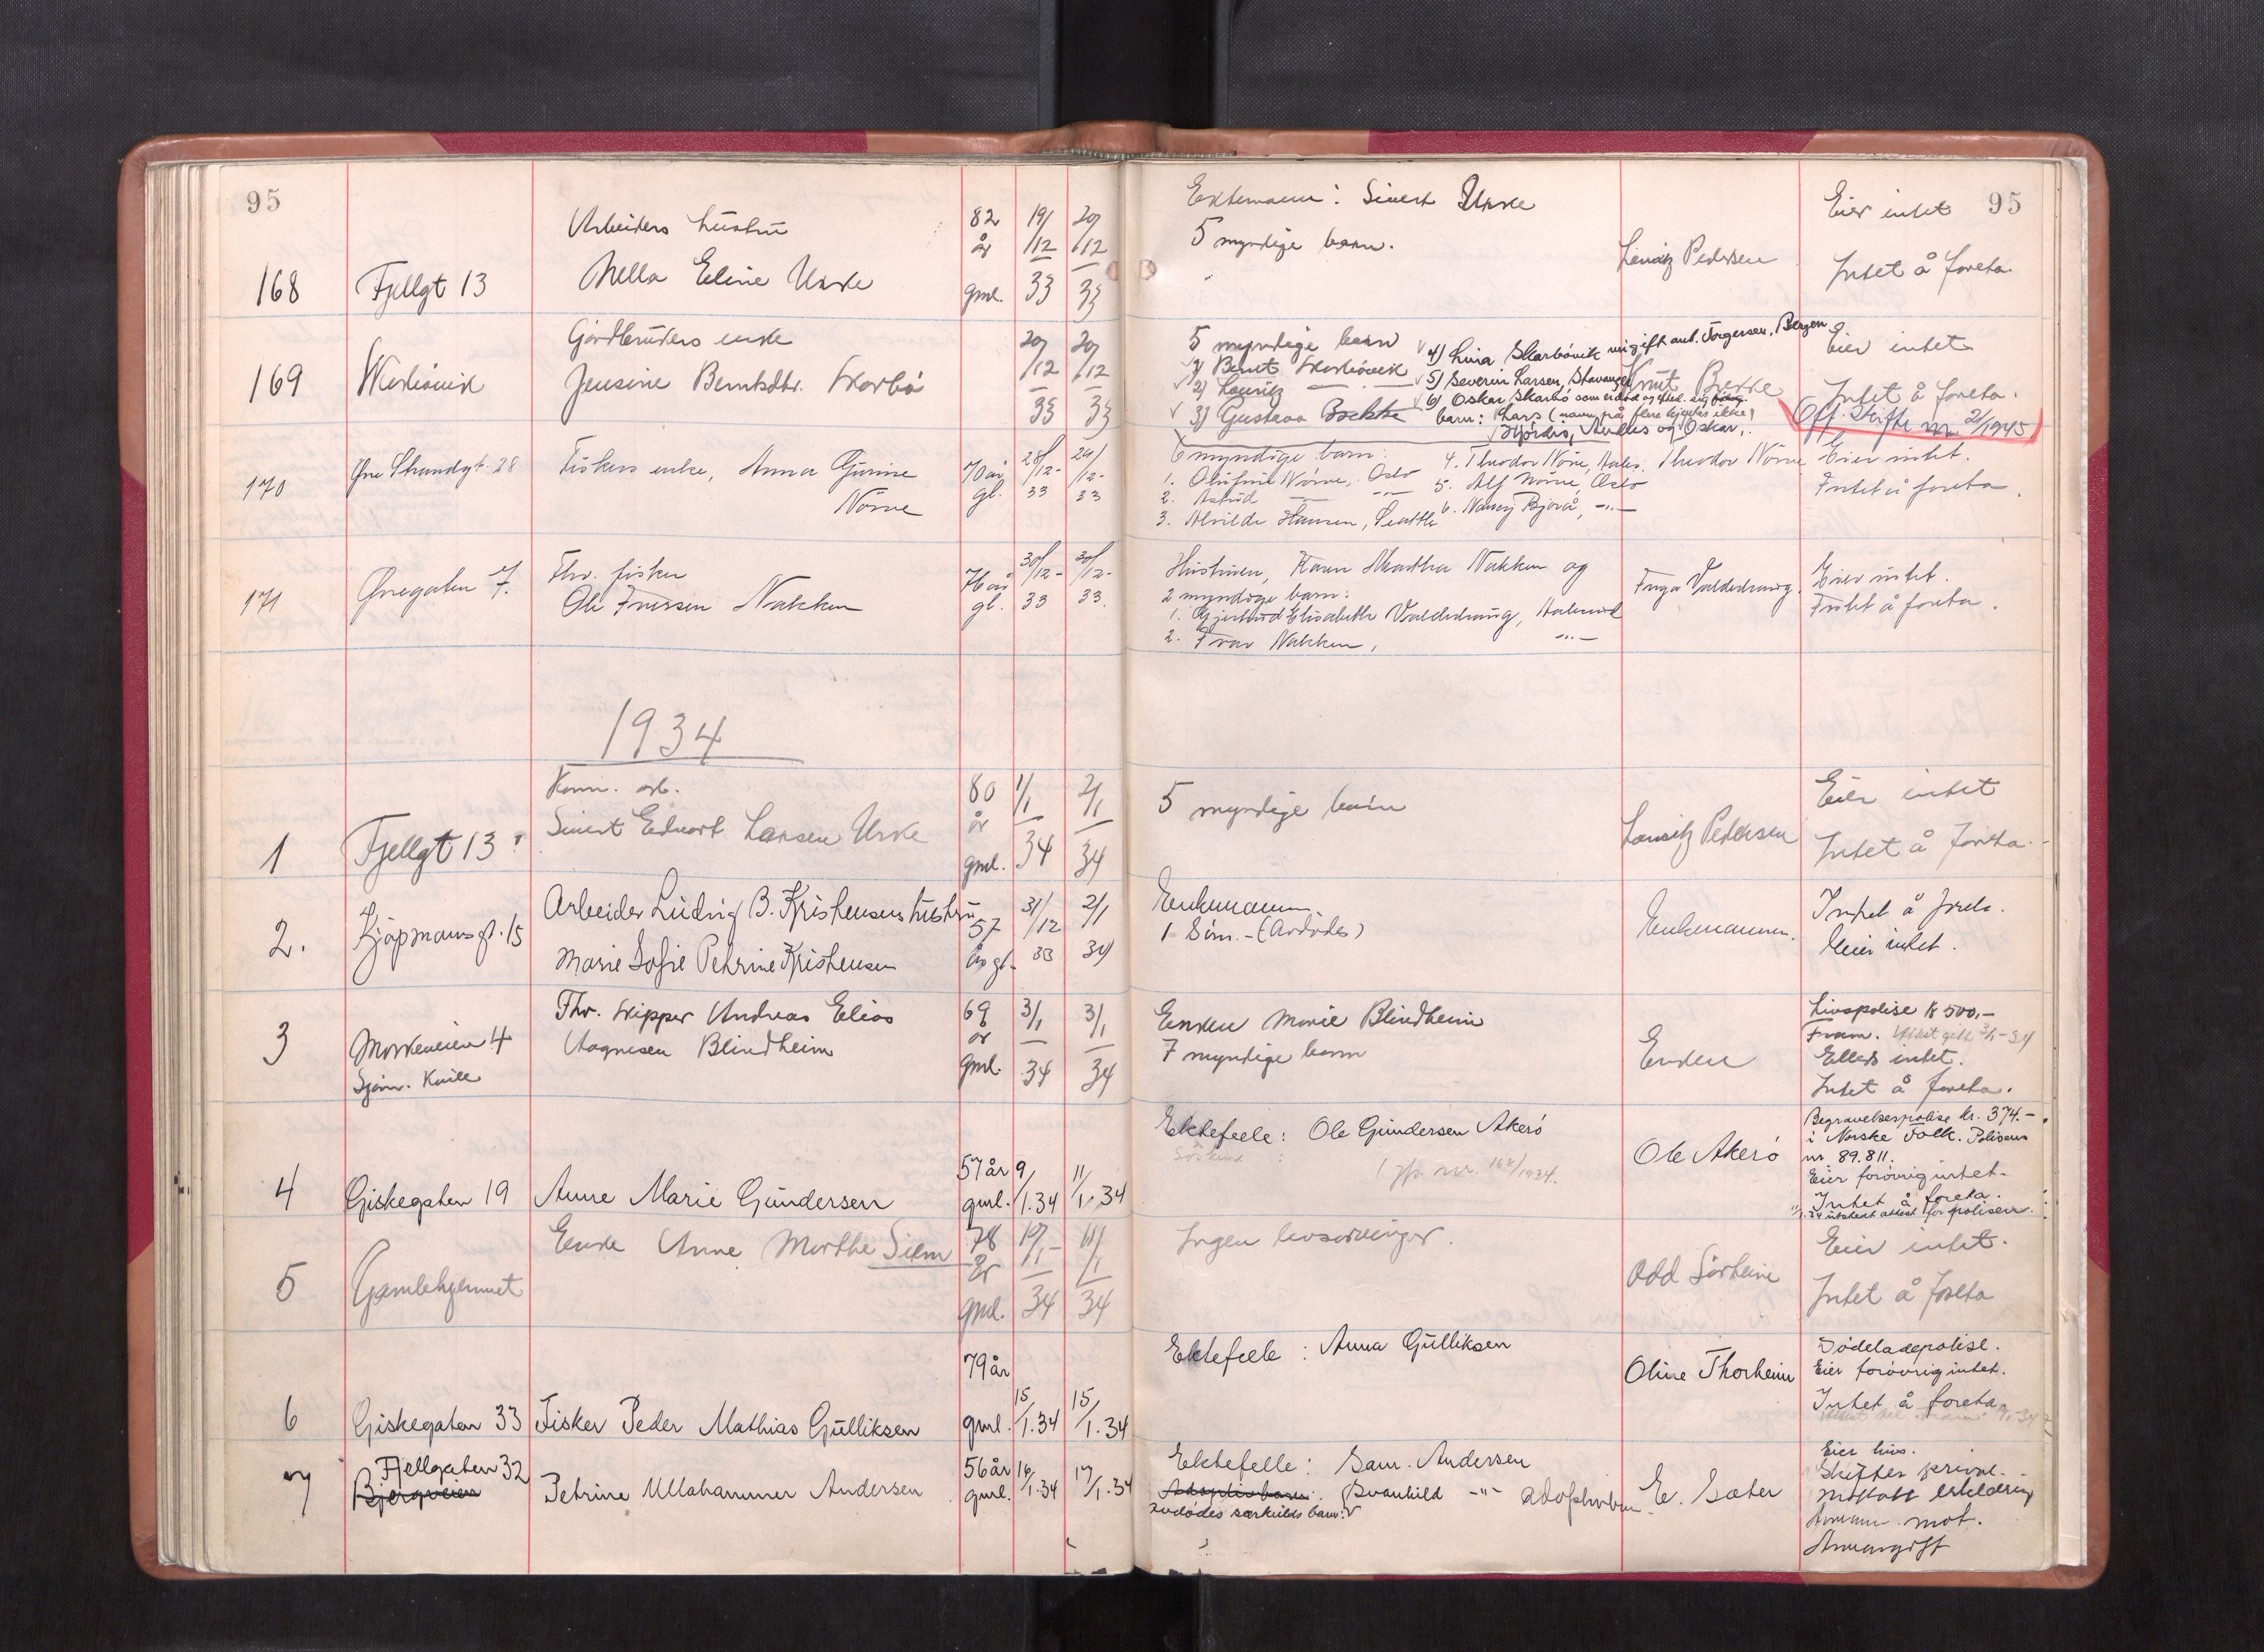 95
95
168
Fjellgt 13
Arbeiders hustru
Nella Eline Urke
82 år gml.
19/12 33
20/12 33
Ektemann: Sivert Urke
5 myndige barn.
Lauritz Pedersen
Eier intet
Intet å foreta
169
Gårdbrukers enke
Jensine Berntsdtr. Skarbö
20/12 33
20/12 33
5 myndige barn
1) Bernt Skarbövik
2) Lauritz — " —
3) Gustava Bakke
4) Lina Skarbövik ugift ant. Torgersen, Bergen
5) Severin Larsen, Stavanger
6) Oskar Skarbö som er död og efterl. sig
barn: Lars (navn på flere kjendes ikke)
Hjördis, Anders og Oskar.
Knut Bakke
Eier intet
Intet å foreta.
Off. Skifte nr 2/1945
170
Övre Strandgt. 28
Fiskers enke, Anna Gurine
Nörve
70 år gl.
28/12- 33
29/12- 33
6 myndige barn:
1. Olufine Nörve, Oslo
2. Astrid — " —
3. Alvilde Hansen, Seattle
4. Theodor Nörve, Aales.
5. Alf Nörve, Oslo
6. Nancy Bjorå, — " —
Theodor Nörve
Eier intet.
Intet å foreta.
171
Øvregaten 7.
Fhv. fisker
Ole Iversen Nakken
76 år gl.
30/12- 33
30/12- 33.
Hustruen, Karen Martha Nakken og
2 myndige barn:
1. Gjertrud Elisabeth Valderhaug, Aalesund
2. Ivar Nakken, — " —
Inga Valderhaug.
Eier intet.
Intet å foreta.
1934
1
Fjellgt 13
Kom. arb.
Sivert Edvart Larsen Urke
80 år gml.
1/1 34
2/1 34
5 myndige barn
Lauritz Pedersen
Eier intet
Intet å foreta.
2.
Kjöpmannsgt. 15
Arbeider Ludvig B. Kristensens hustru
Marie Sofie Petrine Kristensen
57 år gl.
31/12 33
2/1 34
Enkemannen.
1 Sön. - (Avdödes)
Enkemannen.
Intet å foreta.
Eier intet.
3
Morkeveien 4
Fhv. skipper Andreas Elias
Aagnesen Blindheim
69 år gml.
3/1 34
3/1 34
Enken Marie Blindheim
7 myndige barn
Enken
Livspolise kr 500,-
Fram.
Ellers intet.
Intet å foreta.
4
Giskegaten 19
Anne Marie Gundersen
57 år gml.
9/1.34
11/1.34
Ektefelle: Ole Gundersen Akerö
Söskend :
Ole Akerö
Begravelsespolise kr. 374.-
i Norske Folk. Polisens
nr. 89.811.
Eier forövrig intet.
Intet å foreta.
11/1.34 utstedt attest for polisen.
5
Gamlehjemmet
Enke Anne Marthe Siem
78 år gml.
10/1- 34
11/1 34
Ingen livsarvinger.
Odd Sörheim
Eier intet.
Intet å foreta
6
Giskegaten 33
Fisker Peder Mathias Gulliksen
79 år gml.
15/1.34
15/1.34
Ektefelle: Anna Gulliksen
Oline Thorheim
Dödsladepolise.
Eier forövrig intet.
Intet å foreta.
7
Fjellgaten 32
Bjergveien
Petrine Ullahammer Andersen
56 år gml.
16/1.34
17/1.34
Ektefelle: Sam. Andersen
Adoptivbarn: Svanhild — " — adoptivbarn.
avdödes særkulds barn:
E. Sæter
Eier hus.
Skifter privat.